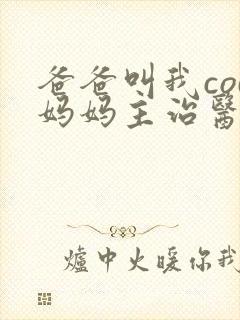 爸爸叫我co
妈妈主治醫
爐中火暖你我